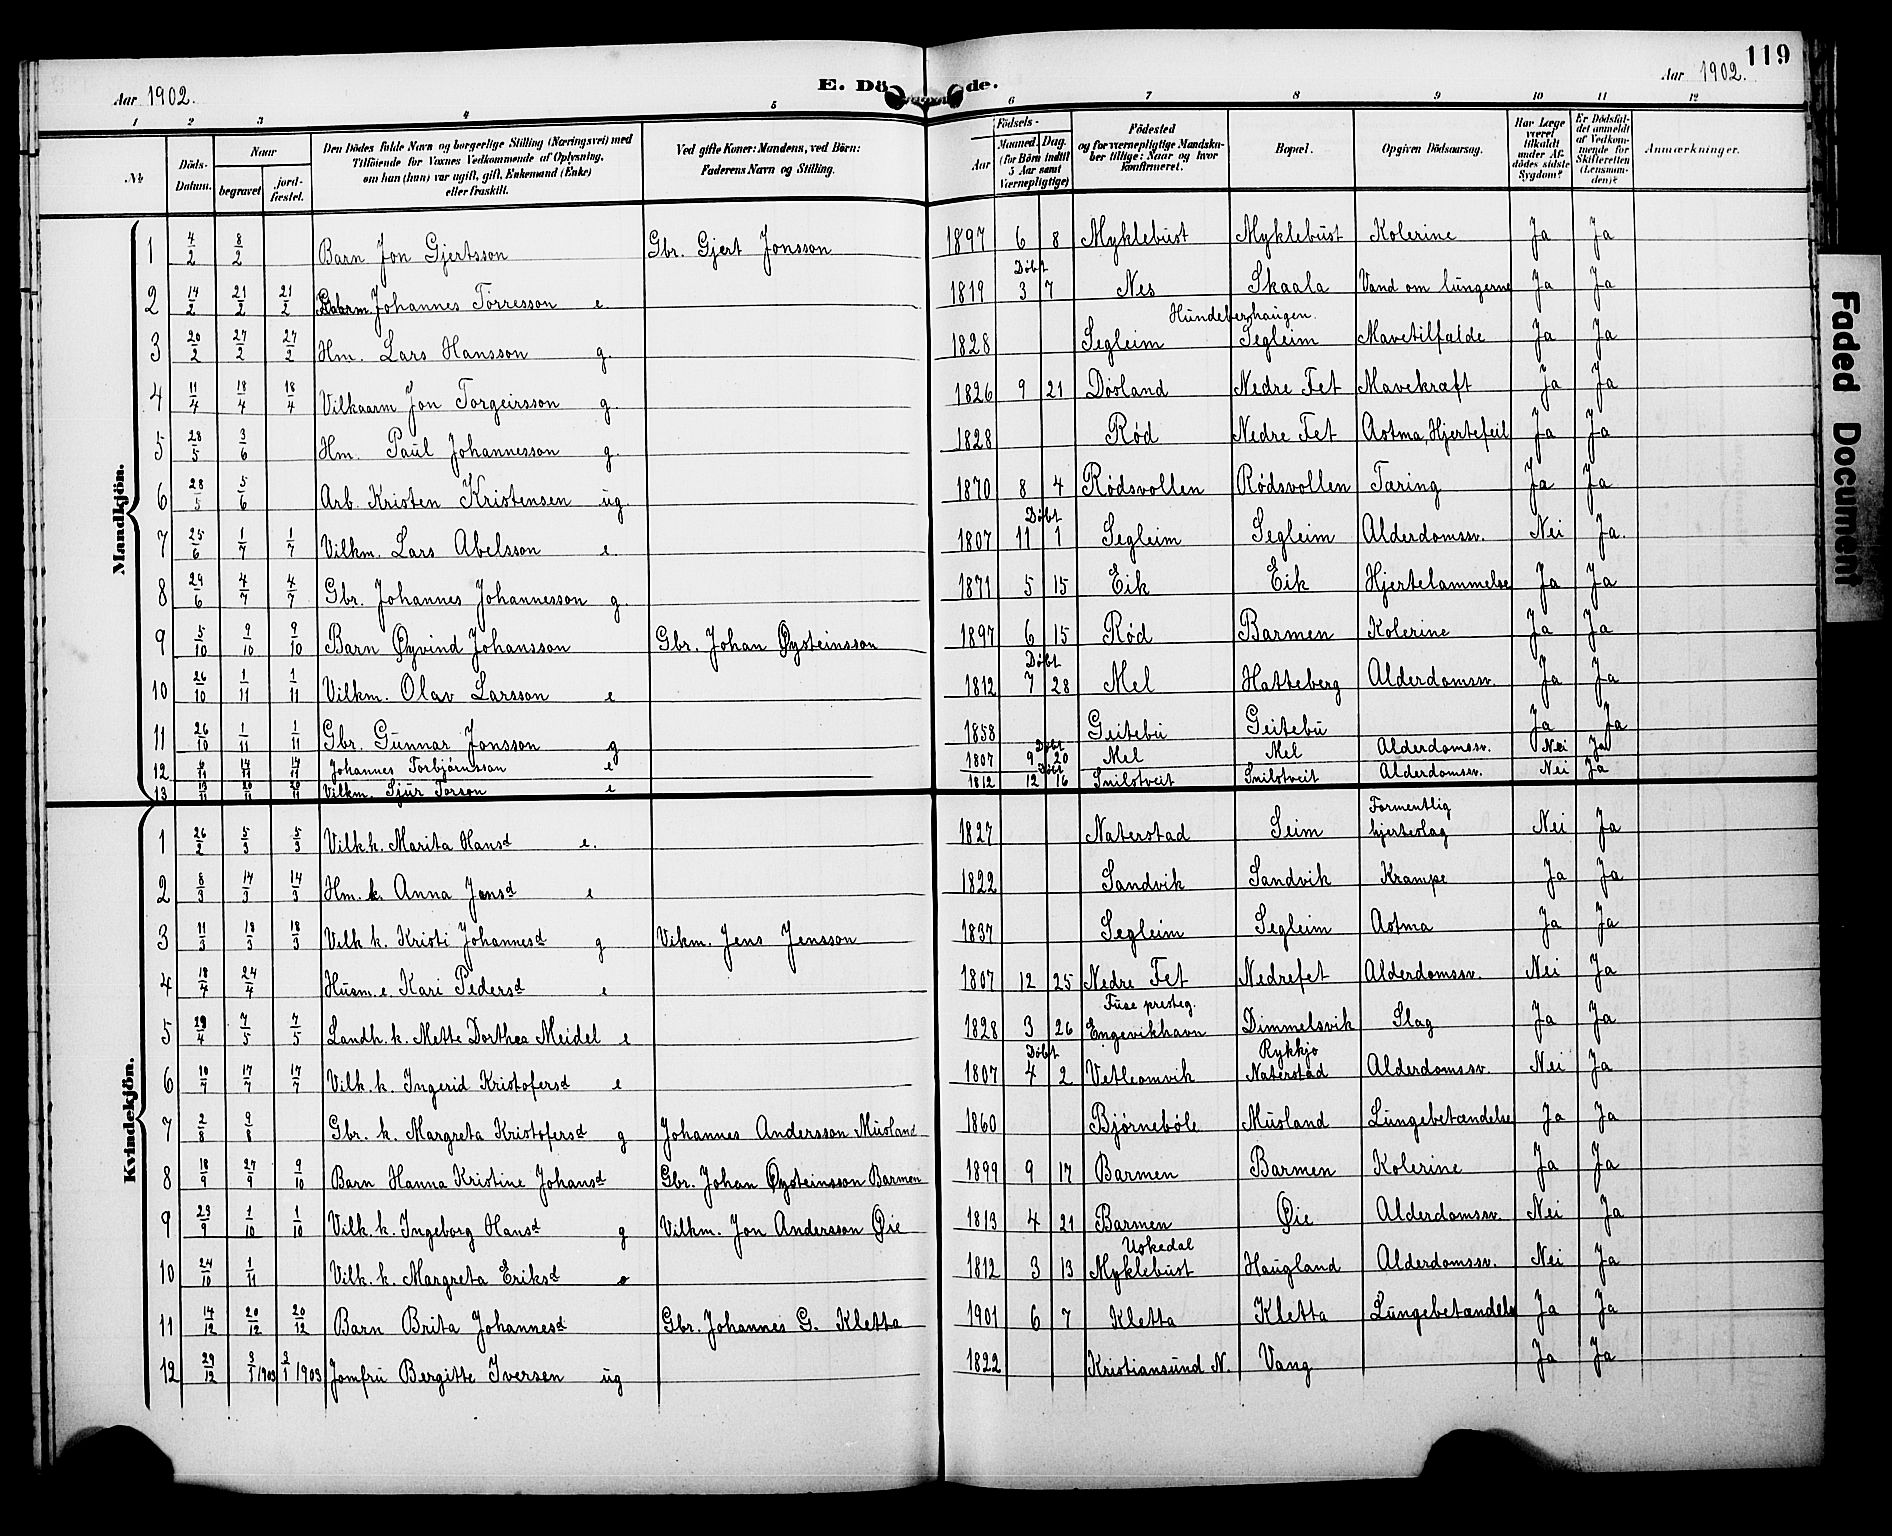 119
Aar 1902. E. Dö de. Aar 1902.
1 2 3 4 5 6 7 8 9 10 11 12
No Döds-Datum. Naar begravet jordfæstet. Den Dödes fulde Navn og borgerlige Stilling (Næringsvei) med Tilföiende for Voxnes Vedkommende af Oplysning, om han (hun) var ugift, gift, Enkemand (Enke) eller fraskilt. Ved gifte Koner: Mandens, ved Börn: Faderens Navn og Stilling. Födsels- Aar Maaned. Dag. (for Börn indtil 5 Aar samt Værnepligtige) Födested og for værnepligtige Mandskaber tillige: Naar og hvor konfirmeret. Bopæl. Opgiven Dödsaarsag. Har Læge været tilkaldt under Afdödes sidste Sygdom? Er Dödsfaldet anmeldt af Vedkommende for Skifteretten (Lensmanden)? Anmærkninger.
Mandkjön.
1 4/2 8/2 Barn Jon Gjertsson Gbr. Gjert Jonsson 1897 6 8 Myklebust Myklebust Kolerine Ja Ja
2 14/2 21/2 21/2 Johannes Törresson e 1819 Döbt 3 7 Nes Skaala Vand om lungerne Ja Ja
3 20/2 27/2 27/2 Hm. Lars Hansson g. 1828 Segleim Hundebershaugen. Segleim Mavetilfælde Ja Ja
4 11/4 18/4 18/4 Vilkaarm Jon Torgeirsson g. 1826 9 21 Dösland Nedre Fet Mavekræft Ja Ja
5 28/5 3/6 Hm. Paul Johannesson g. 1828 Rød Nedre Fet Astma, Hjertefeil Ja Ja
6 28/5 5/6 Arb. Kristen Kristensen ug. 1870 8 4 Rødsvollen Rødsvollen Tæring Ja Ja
7 25/6 1/7 1/7 Vilkm. Lars Abelsson e. 1807 Döbt 11 1 Segleim Segleim Alderdomssv. Nei Ja.
8 29/6 4/7 4/7 Gbr. Johannes Johannesson g. 1871 5 15 Eik Eik Hjertelammelse Ja Ja
9 5/10 9/10 9/10 Barn Øyvind Johansson Gbr. Johan Øysteinsson 1897 6 15 Rød Barmen Kolerine Ja Ja
10 26/10 1/11 1/11 Vilkm. Olav Larsson e 1812 Döbt 7 28 Mel Hatteberg Alderdomssv. Ja Ja
11 26/10 1/11 1/11 Gbr. Gunnar Jonsson g 1858 Geitebu Geitebu Ja Ja
12 14/11 14/11 Johannes Torbjörnsson e 1807 Döbt 9 20 Mel Mel Alderdomssv. Nei Ja
13 13/11 20/11 20/11 Vilkm. Sjur Torson e 1812 Döbt 12 16 Snilstveit Snilstveit Alderdomssv. Nei Ja
Kvindekjön.
1 26/2 5/3 5/3 Vilk k. Marita Hansd e. 1827 Naterstad Seim Formentlig hjerteslag Nei Ja
2 8/3 14/3 14/3 Hm. k. Anna Jensd e 1822 Sandvik Sandvik Krampe Ja Ja
3 11/3 18/3 18/3 Vilk k. Kristi Johannesd g Vikm. Jens Jensson 1837 Segleim Segleim Astma Ja Ja
4 18/4 24/4 Husm. e. Kari Pedersd e 1807 12 25 Nedre Fet Nedrefet Alderdomssv. Nei Ja
5 29/4 7/5 7/5 Landh. k. Mette Dorthea Meidel e 1828 3 26 Fuse presteg. Engevikhavn Dimmelsvik Slag Ja Ja
6 10/7 17/7 17/7 Vilk. k. Ingerid Kristofersd e 1807 Döbt 4 2 Vetleomvik Rykkjo Naterstad Alderdomssv. Nei Ja
7 2/8 9/8 Gbr. k. Margreta Kristofersd g Johannes Andersson Musland 1860 Bjørnebøle Musland Lungebetændelse Ja Ja
8 18/9 27/9 9/10 Barn Hanna Kristine Johansd Gbr. Johan Øysteinsson Barmen 1899 9 17 Barmen Barmen Kolerine Ja Ja
9 23/9 1/10 1/10 Vilk. k. Ingeborg Hansd g Vilkm. Jon Andersson Øie 1813 4 21 Barmen Øie Alderdomssv. Nei Ja
10 24/10 1/11 Vilk. k. Margreta Eriksd 1812 3 13 Uskedal Myklebust Haugland Alderdomssv. Nei Ja
11 14/12 20/12 20/12 Barn Brita Johannesd Gbr. Johannes G. Kletta 1901 6 7 Kletta Kletta Lungebetændelse Ja Ja
12 29/12 3/1 1903 3/1 1903 Jomfru Bergitte Iversen ug 1822 Kristiansund N. Vang Ja Ja
Faded Document